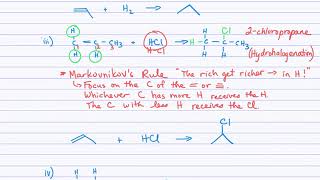 + H₂ →
iii) H H H C = C - C - CH₃ + HCl → H - C - C - CH₃ Cl H H 2-chloropropane
(Hydrohalogenation)
* Markovnikov's Rule "The rich get richer → in H!"
↳ Focus on the C of the = or ≡.
Whichever C has more H receives the H.
The C with less H receives the Cl.
+ HCl → Cl
iv) H H